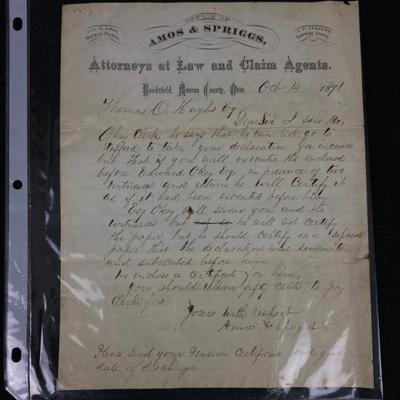 OFFICE OF
AMOS & SPRIGGS,
Notary Public.
Attorneys at Law and Claim Agents.
Woodsfield, Monroe County, Ohio, Oct 14 1891.
Thomas C. Hughs Esq
Dear Sir I saw Mr.
Okey Clerk he says that he can not go to
Stafford to take your declaration for increase
but that if you will execute the enclosed
before Edward Okey Esq. in presence of two
witnesses and return he will certify it
as if it had been executed before him
Esq Okey will swear you and the
witnesses but he will not certify
the paper but he should certify on a separate
paper that the declaration was sworn to
and subscribed before him
We enclose a certificate for him,
You should return fifty cents to pay
Clerks fees
Yours with respect
Amos & Spriggs
Please send your Pension Certificate and give
date of discharge